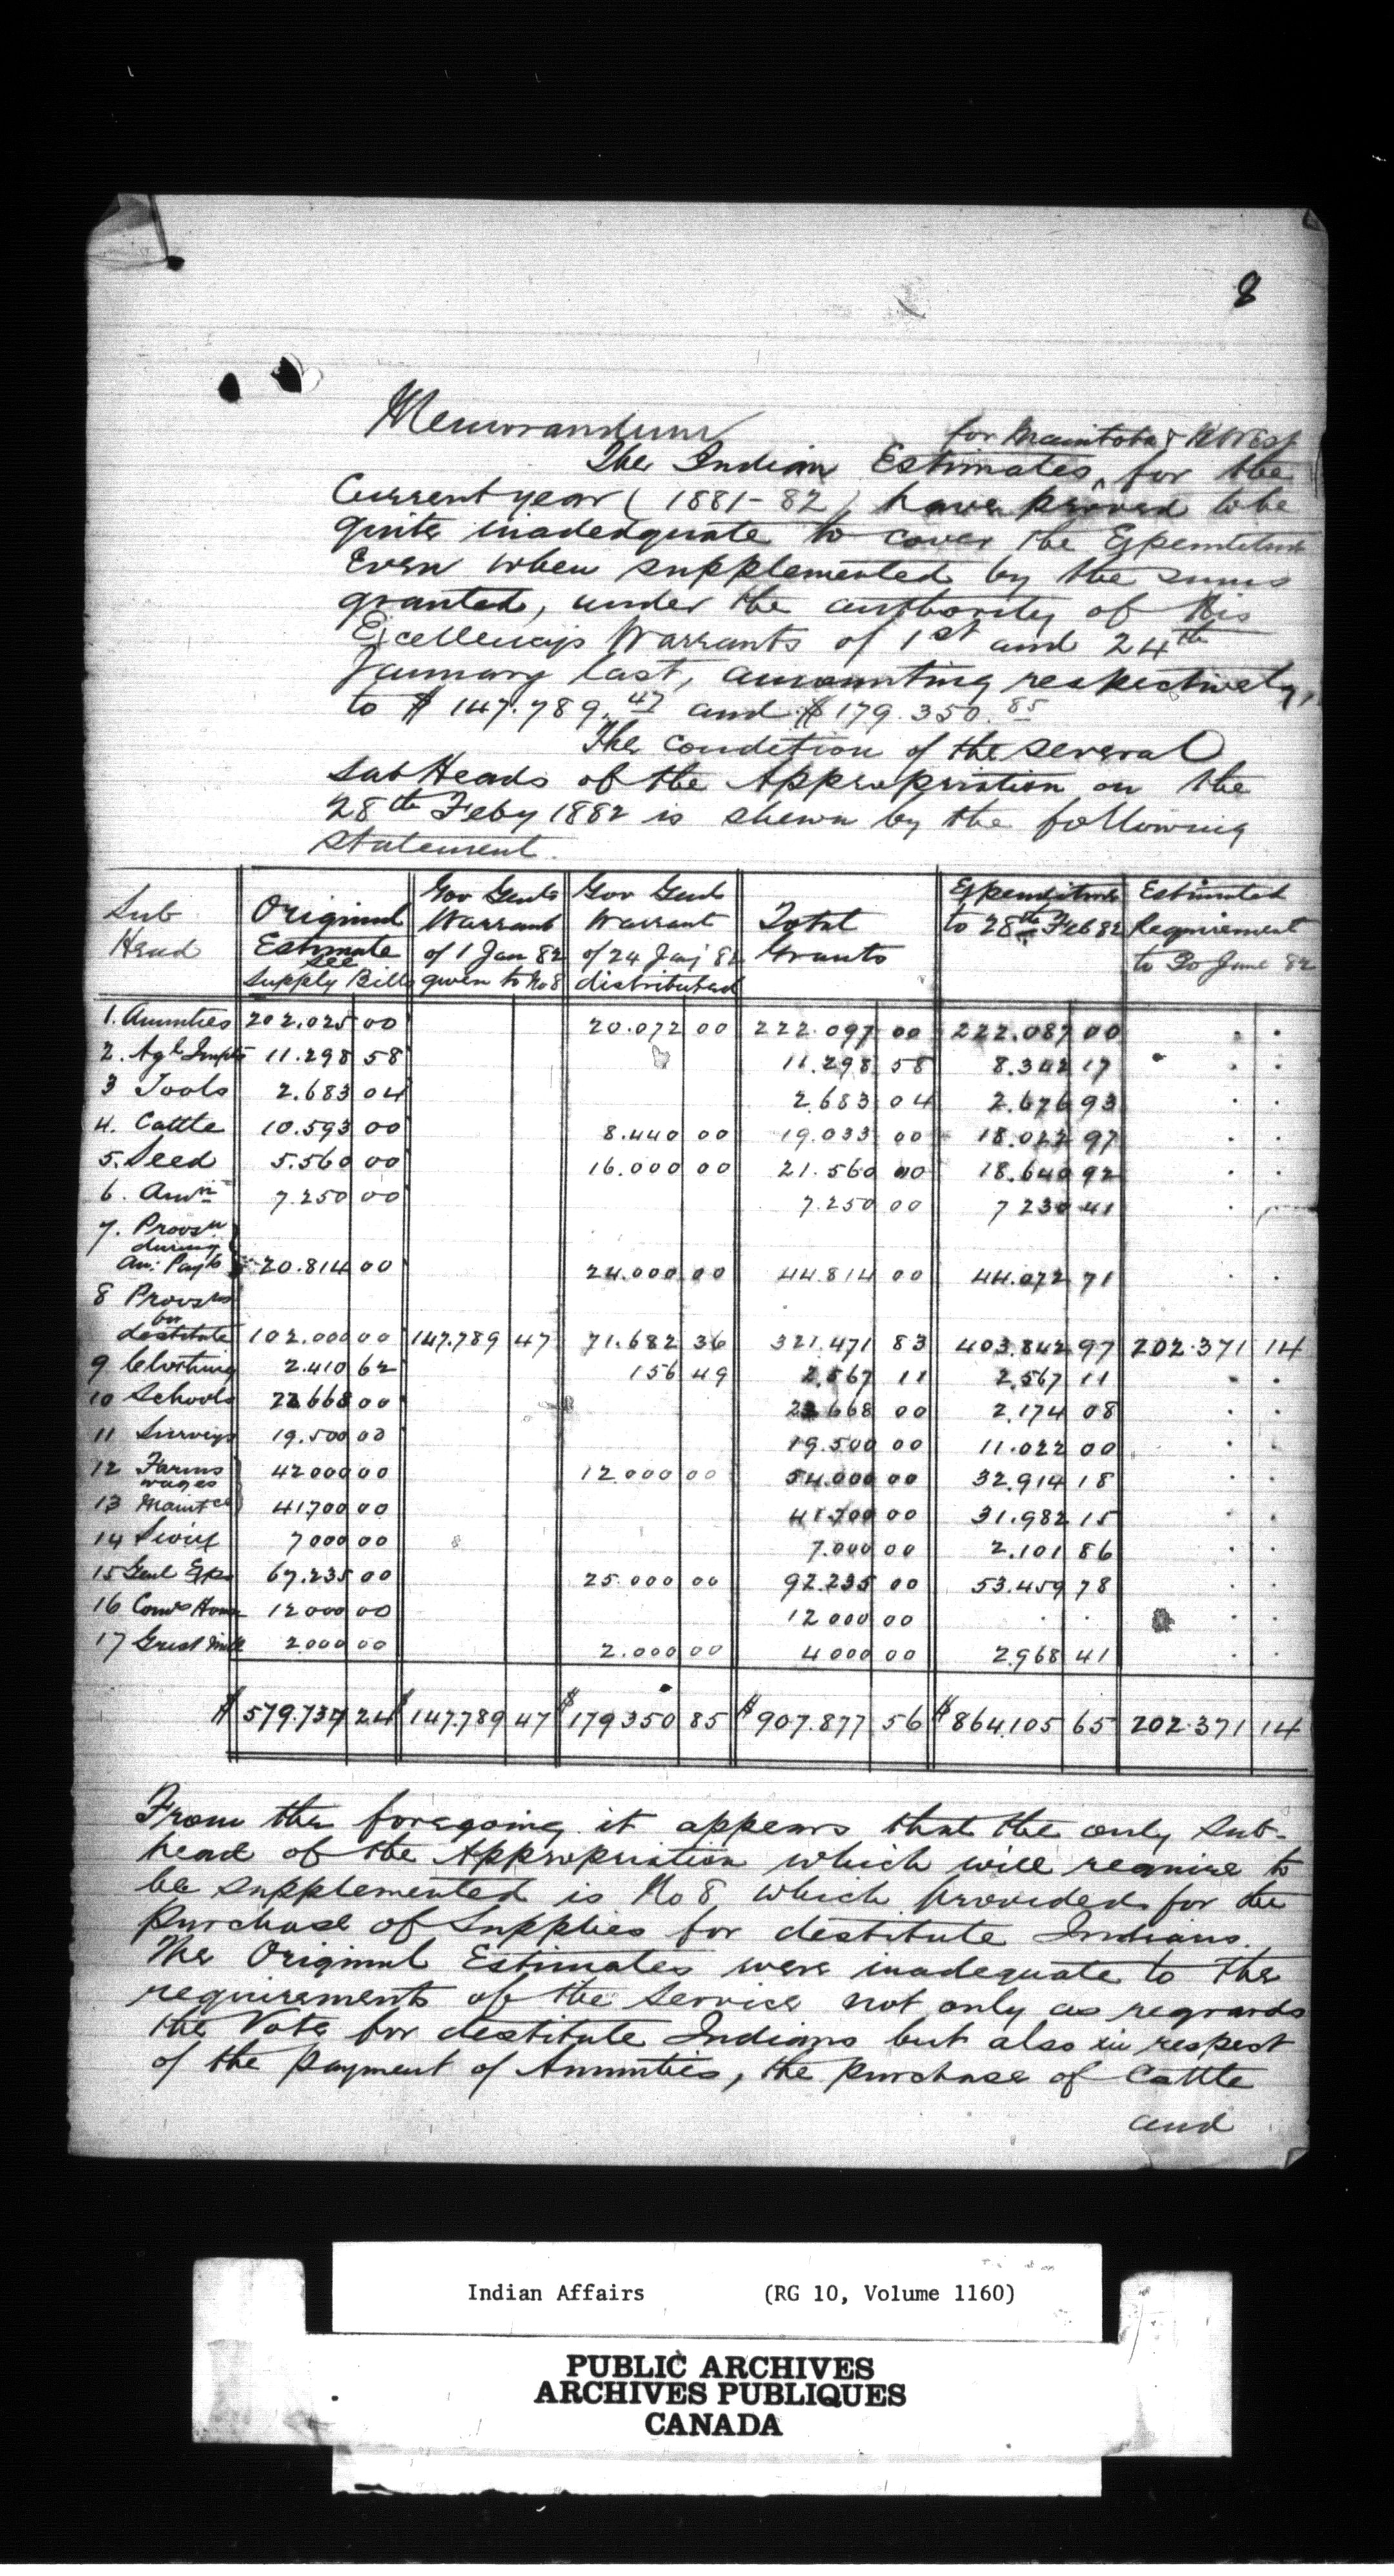 8
Memorandum
for Manitoba & N West
The Indian Estimates ^ for the
Current year (1881-82) have proved to be
quite inadequate to cover the Expenditure
Even when supplemented by the sums
granted, under the authority of His
Excellency's Warrants of 1st and 24th
January last, amounting respectively,
to $147.789.47 and $179.350.85
The condition of the several
Sub Heads of the Appropriation on the
28th Feby 1882 is shewn by the following
statement.
Sub Head | Original Estimate see Supply Bill | Gov Genls Warrant of 1 Jan 82 given to No 8 | Gov Genls Warrant of 24 Jany 82 distributed | Total Grants | Expenditure to 28th Feb 82 | Estimated Requirement to 30 June 82
1. Annuities 202.025 00 20.072 00 222.097 00 222.087 00 . .
2. Agl Impts 11.298 58 11.298 58 8.342 17 . .
3 Tools 2.683 04 2.683 04 2.676 93 . .
4. Cattle 10.593 00 8.440 00 19.033 00 18.022 97 . .
5. Seed 5.560 00 16.000 00 21.560 00 18.640 92 . .
6. Amn 7.250 00 7.250 00 7 230 41 .
7. Provsn
during
An: Payts 20.814 00 24.000 00 44.814 00 44.072 71 . .
8 Provsns
for
destitute 102.000 00 147.789 47 71.682 36 321.471 83 403.842 97 202.371 14
9 Clothing 2.410 62 156 49 2.567 11 2.567 11 . .
10 Schools 22 668 00 22 668 00 2.174 08 . .
11 Surveys 19.500 00 19.500 00 11.022 00 . .
12 Farms
wages 42 000 00 12.000 00 54.000 00 32.914 18 . .
13 Maintce 41.700 00 41.700 00 31.982 15 . .
14 Sioux 7 000 00 7.000 00 2.101 86 . .
15 Genl Exps 67.235 00 25.000 00 92.235 00 53.459 78 . .
16 Comrs House 12 000 00 12 000 00 . . . .
17 Grist Mill 2.000 00 2.000 00 4 000 00 2.968 41 . .
$ 579.737 24 $ 147.789 47 $ 179 350 85 $ 907.877 56 $ 864.105 65 202.371 14
From the foregoing it appears that the only Sub-
head of the Appropriation which will require to
be supplemented is No 8 which provides for the
purchase of Supplies for destitute Indians.
The Original Estimates were inadequate to the
requirements of the Service not only as regards
the Vote for destitute Indians but also in respect
of the payment of Annuities, the purchase of Cattle
and
Indian Affairs (RG 10, Volume 1160)
PUBLIC ARCHIVES
ARCHIVES PUBLIQUES
CANADA